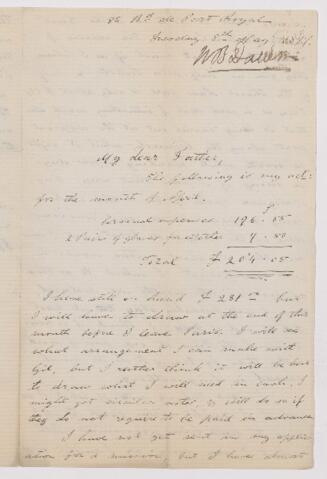 86 Bd. de Port Royal
Tuesday 8th May
My dear Father,
The following is my acct.
for the month of April.
Personal expenses 196.05
2 Pairs of gloves for
Total F 204.05
I have still on hand F 281 but
I will have to draw at the end of this
month before I leave Paris. I will see
what arrangement I can make with
but I rather think it will be best
to draw what I will need in cash. I
might get circular notes & will do so if
they do not require to be paid in advance
I have not yet sent in my applic
ation for a mission but I have almost